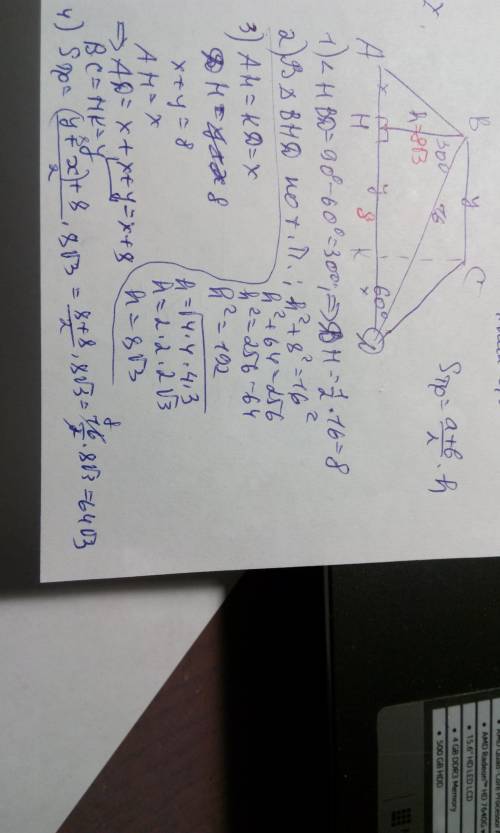 A
x
H
y
8
K
x
D
60°
h=8√3
30°
16
B
y
C
Sтр = a+b/2 · h
1) ∠HBD = 90°-60° = 30°, ⇒ DH = 1/2 · 16 = 8
2) В △BHD по т. П.: h² + 8² = 16²
h² + 64 = 256
h² = 256 - 64
h² = 192
h = √4·4·4·3
h = 2·2·2√3
h = 8√3
3) AH = KD = x
DH = 8
x+y = 8
AH = x
⇒ AD = x + x + y = x + 8
BC = HK = y
4) Sтр = (y + x) + 8/2 · 8√3 = 8+8/2 · 8√3 = 16/2 · 8√3 = 64√3
AMD Radeon™ HD 7640G
15.6" HD LED LCD
4 GB DDR3 Memory
500 GB HDD